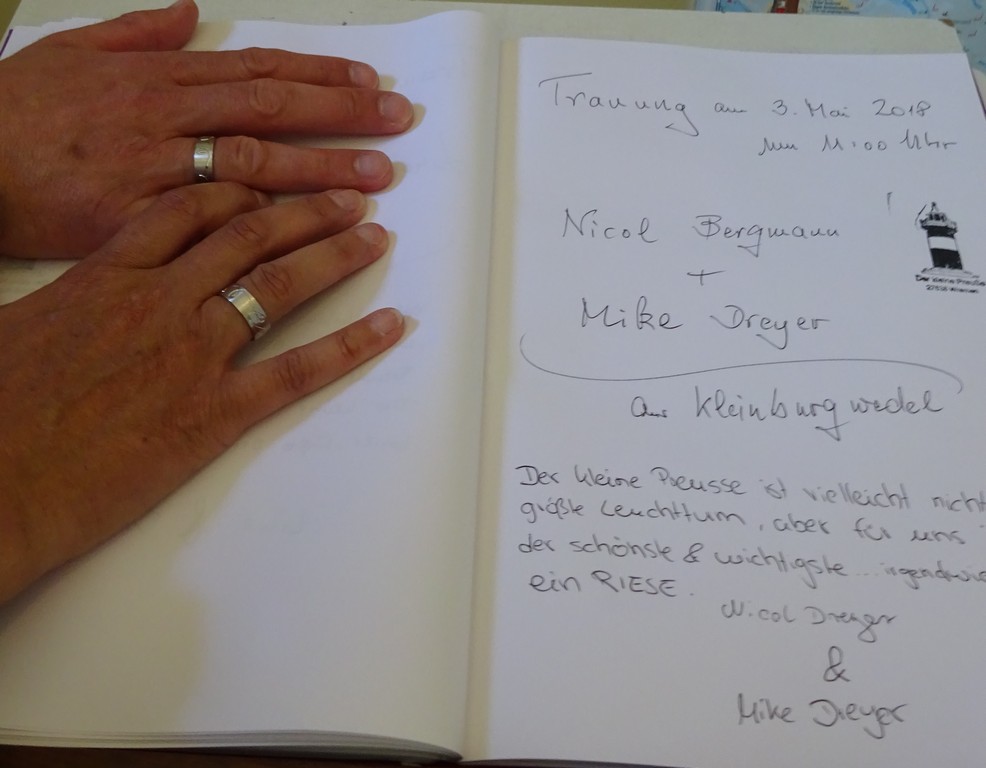 Trauung am 3. Mai 2018
um 11:00 Uhr
Nicol Bergmann
+
Mike Dreyer
aus Kleinburgwedel
Der kleine Preuße
27638 Wremen
Der kleine Preusse ist vielleicht nicht
größte Leuchtturm, aber für uns
der schönste & wichtigste... irgendwie
ein RIESE.
Nicol Dreyer
&
Mike Dreyer